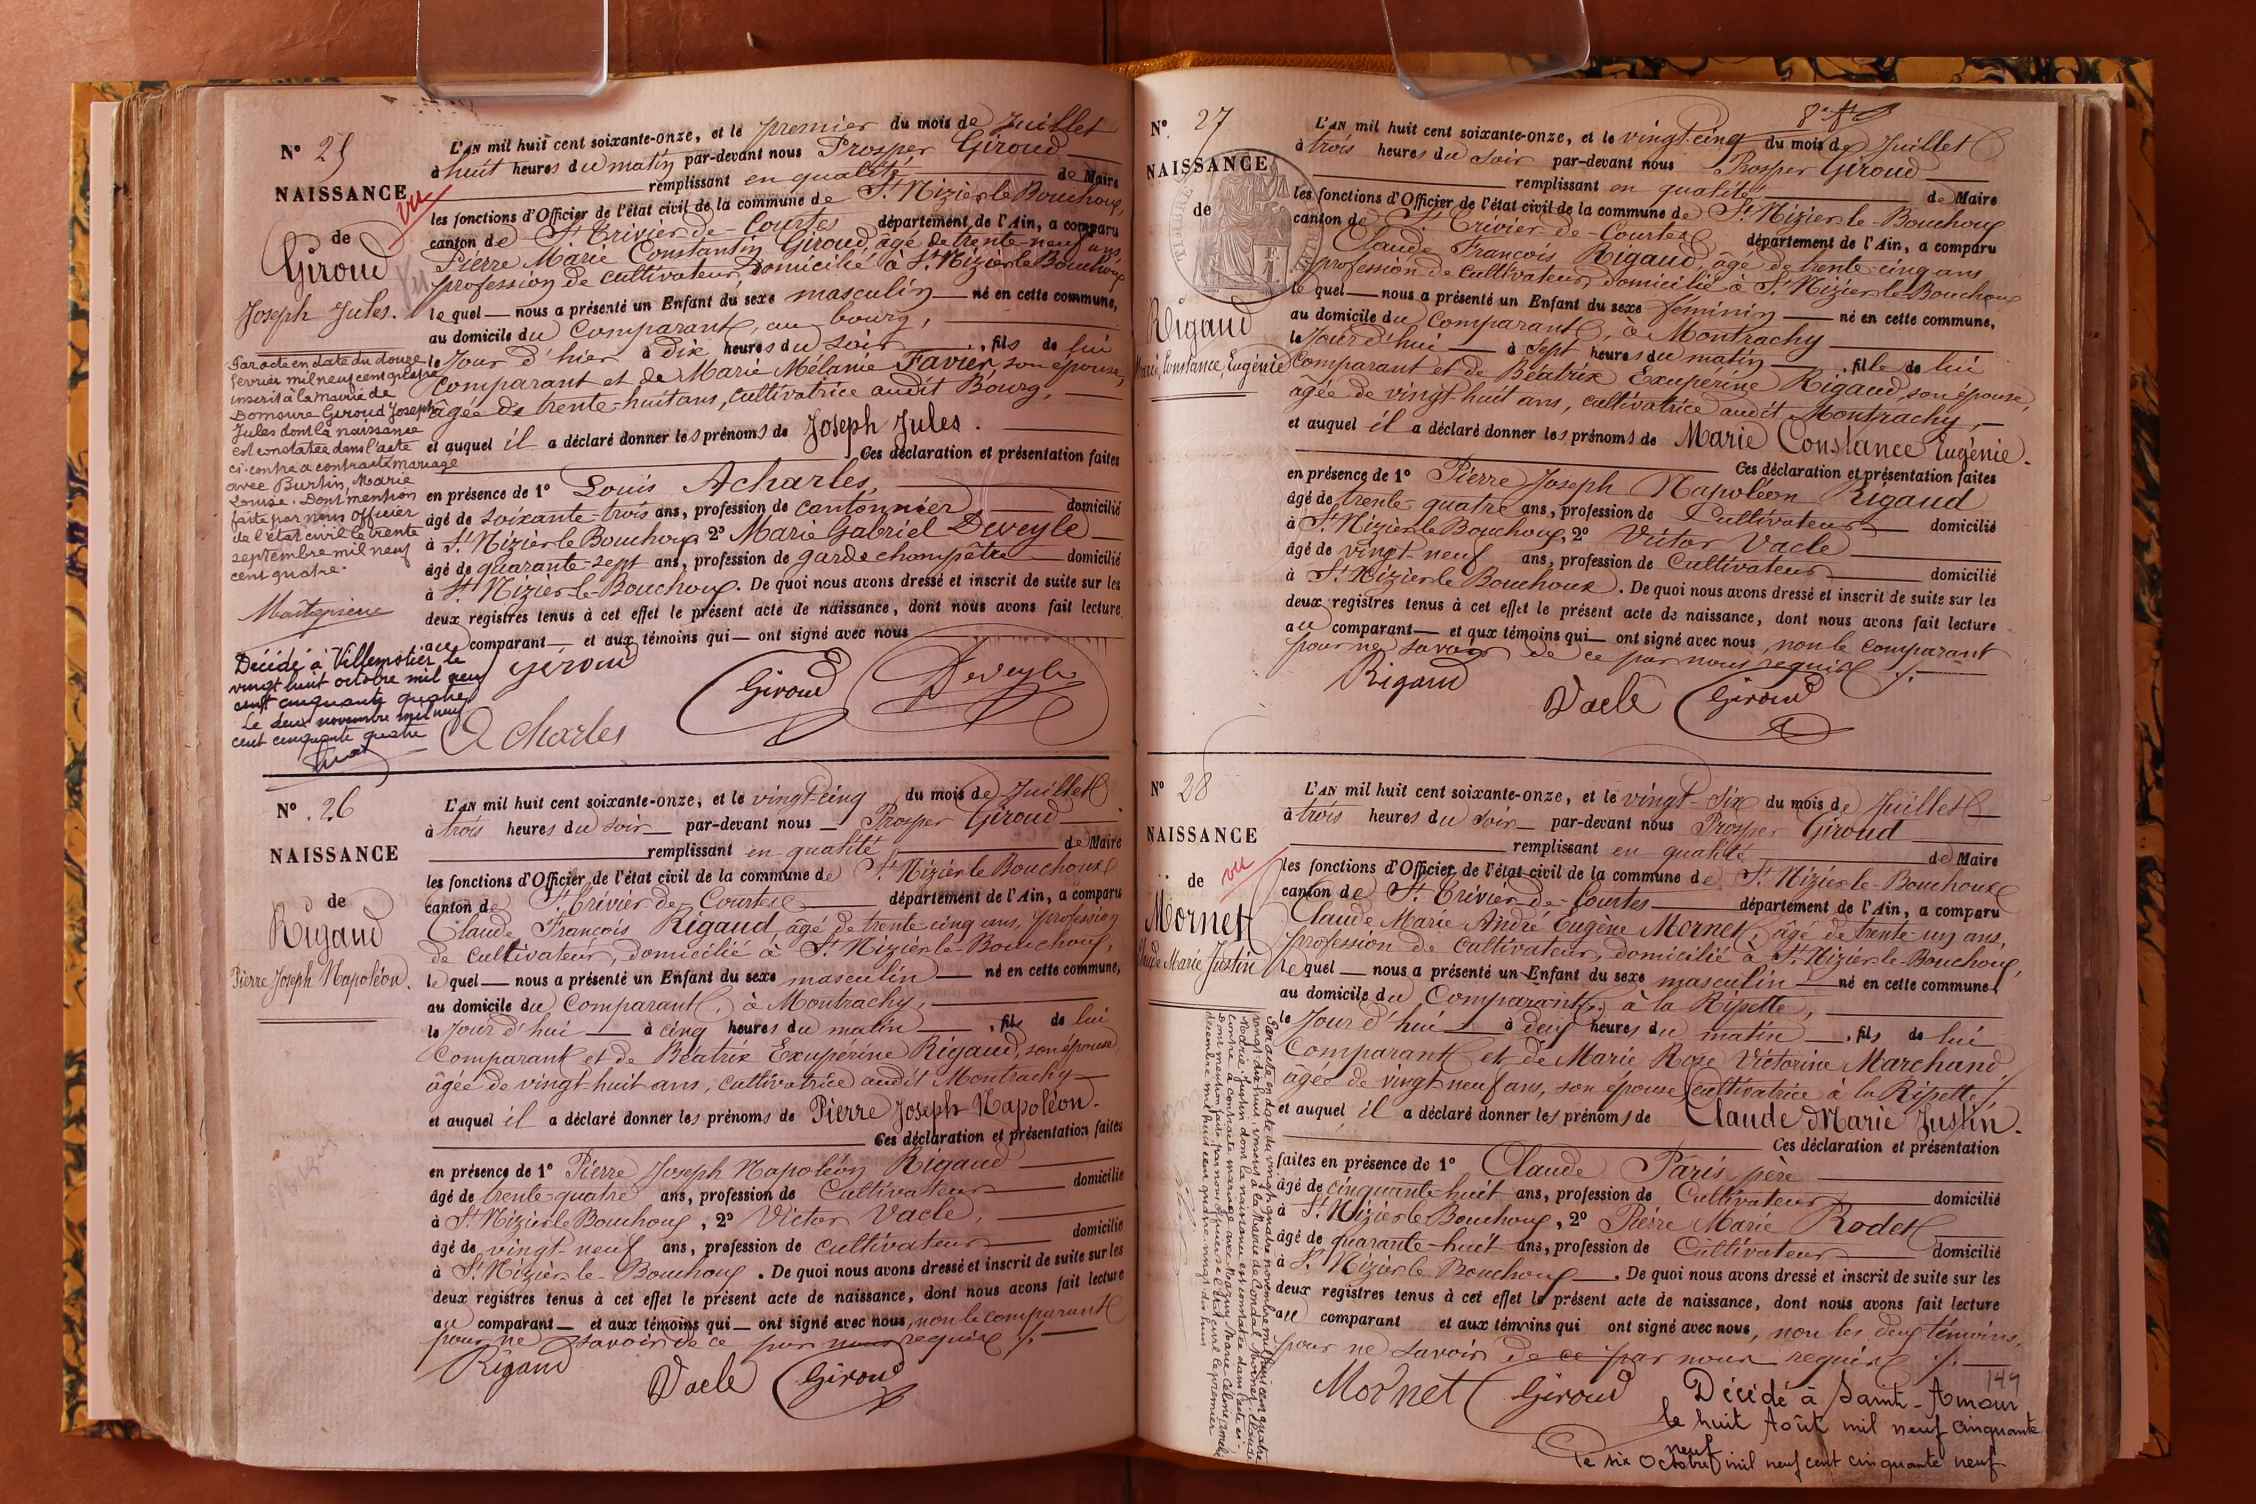 N° 25
NAISSANCE
vu
de
Giroud
Joseph Jules.
Par acte en date du douze
février mil neuf cent quatre
inscrit à la mairie de
Domsure Giroud Joseph
Jules dont la naissance
est constatée dans l'acte
ci-contre a contracté mariage
avec Burtin, Marie
Louise. Dont mention
faite par nous officier
de l'état civil le trente
septembre mil neuf
cent quatre.
Décédé à Villemotier le
vingt huit octobre mil neuf
cent cinquante quatre
Le deux novembre mil neuf
cent cinquante quatre
L'AN mil huit cent soixante-onze, et le premier du mois de Juillet
à huit heures du matin par-devant nous Prosper Giroud
remplissant en qualité de Maire
les fonctions d'Officier de l'état civil de la commune de St Nizier le Bouchoux,
canton de St Trivier-de-Courtes département de l'Ain, a comparu
Pierre Marie Constantin Giroud, âgé de trente-neuf ans,
profession de cultivateur, domicilié à St Nizier le Bouchoux
lequel nous a présenté un Enfant du sexe masculin né en cette commune,
au domicile du comparant, au bourg,
le Jour d'hier à dix heures du soir, fils de lui
comparant et de Marie Mélanie Favier, son épouse,
âgée de trente-huit ans, cultivatrice audit Bourg,
et auquel il a déclaré donner les prénoms de Joseph Jules.
Ces déclaration et présentation faites
en présence de 1° Louis Acharles,
âgé de soixante-trois ans, profession de cantonnier domicilié
à St Nizier le Bouchoux 2° Marie Gabriel Deveyle
âgé de quarante-sept ans, profession de garde champêtre domicilié
à St Nizier-le-Bouchoux. De quoi nous avons dressé et inscrit de suite sur les
deux registres tenus à cet effet le présent acte de naissance, dont nous avons fait lecture
au comparant et aux témoins qui ont signé avec nous
Giroud
Giroud
Deveyle
Acharles
N° 26
NAISSANCE
de
Rigaud
Pierre Joseph Napoléon.
L'AN mil huit cent soixante-onze, et le vingt-cinq du mois de Juillet
à trois heures du soir par-devant nous Prosper Giroud
remplissant en qualité de Maire
les fonctions d'Officier de l'état civil de la commune de St Nizier le Bouchoux
canton de St Trivier de Courtes département de l'Ain, a comparu
Claude François Rigaud, âgé de trente cinq ans, profession
de cultivateur, domicilié à St Nizier-le-Bouchoux,
lequel nous a présenté un Enfant du sexe masculin né en cette commune,
au domicile du comparant, à Montrachy,
le Jour d'hui à cinq heures du matin, fils de lui
comparant et de Béatrix Exupérine Rigaud, son épouse
âgée de vingt-huit ans, cultivatrice audit Montrachy
et auquel il a déclaré donner les prénoms de Pierre Joseph Napoléon.
Ces déclaration et présentation faites
en présence de 1° Pierre Joseph Napoléon Rigaud
âgé de trente quatre ans, profession de Cultivateur domicilié
à St Nizier le Bouchoux, 2° Victor Vacle,
âgé de vingt-neuf ans, profession de cultivateur domicilié
à St Nizier-le-Bouchoux. De quoi nous avons dressé et inscrit de suite sur les
deux registres tenus à cet effet le présent acte de naissance, dont nous avons fait lecture
au comparant et aux témoins qui ont signé avec nous, non le comparant
pour ne savoir de ce par nous requis
Rigaud
Vacle
Giroud
N° 27
NAISSANCE
de
Rigaud
Marie, Constance, Eugénie
L'AN mil huit cent soixante-onze, et le vingt-cinq du mois de Juillet
à trois heures du soir par-devant nous Prosper Giroud
remplissant en qualité de Maire
les fonctions d'Officier de l'état civil de la commune de St Nizier-le-Bouchoux
canton de St Trivier-de-Courtes département de l'Ain, a comparu
Claude François Rigaud, âgé de trente-cinq ans,
profession de cultivateur, domicilié à St Nizier le Bouchoux
lequel nous a présenté un Enfant du sexe féminin né en cette commune,
au domicile du comparant, à Montrachy
le Jour d'hui à sept heures du matin, fille de lui
comparant et de Béatrix Exupérine Rigaud, son épouse,
âgée de vingt-huit ans, cultivatrice audit Montrachy,
et auquel il a déclaré donner les prénoms de Marie Constance Eugénie.
Ces déclaration et présentation faites
en présence de 1° Pierre Joseph Napoléon Rigaud
âgé de trente-quatre ans, profession de Cultivateur domicilié
à St Nizier le Bouchoux, 2° Victor Vacle
âgé de vingt-neuf ans, profession de Cultivateur domicilié
à St Nizier le Bouchoux. De quoi nous avons dressé et inscrit de suite sur les
deux registres tenus à cet effet le présent acte de naissance, dont nous avons fait lecture
au comparant et aux témoins qui ont signé avec nous, non le comparant
pour ne savoir de ce par nous requis
Rigaud
Vacle
Giroud
N° 28
NAISSANCE
vu
de
Mornet
Claude Marie Justin
Par acte en date du vingt quatre novembre mil huit cent quatre
vingt dix huit, inscrit à la Mairie de Condal, Mornet, Claude
Marie Justin, dont la naissance est constatée dans l'acte ci-
contre a contracté mariage avec
Dont mention faite par nous officier de l'état civil le premier
décembre mil huit cent quatre vingt dix huit
L'AN mil huit cent soixante-onze, et le vingt-six du mois de Juillet
à trois heures du soir par-devant nous Prosper Giroud
remplissant en qualité de Maire
les fonctions d'Officier de l'état civil de la commune de St Nizier-le-Bouchoux
canton de St Trivier-de-Courtes département de l'Ain, a comparu
Claude Marie André Eugène Mornet, âgé de trente-un ans,
profession de cultivateur, domicilié à St Nizier-le-Bouchoux,
lequel nous a présenté un Enfant du sexe masculin né en cette commune,
au domicile du Comparant, à la Ripette,
le Jour d'hui à deux heures du matin, fils de lui
Comparant et de Marie Rose Victorine Marchand,
âgée de vingt-neuf ans, son épouse, cultivatrice à la Ripette,
et auquel il a déclaré donner les prénoms de Claude Marie Justin.
Ces déclaration et présentation
faites en présence de 1° Claude Pâris père
âgé de cinquante-huit ans, profession de Cultivateur domicilié
à St Nizier le Bouchoux, 2° Pierre Marie Rodet
âgé de quarante-huit ans, profession de Cultivateur domicilié
à St Nizier le Bouchoux. De quoi nous avons dressé et inscrit de suite sur les
deux registres tenus à cet effet le présent acte de naissance, dont nous avons fait lecture
au comparant et aux témoins qui ont signé avec nous, non les deux témoins,
pour ne savoir de ce par nous requis
Mornet
Giroud
149
Décédé à Saint-Amour
le huit Août mil neuf cinquante
neuf
Le six Octobre mil neuf cent cinquante neuf